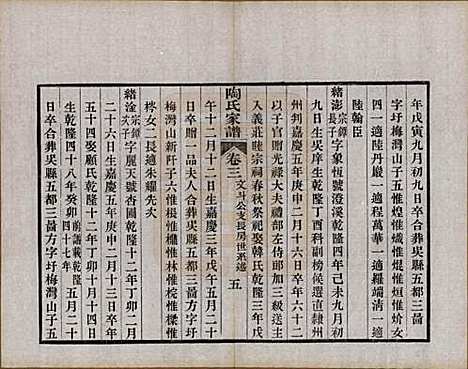 年戊寅九月初九日卒合葬吳縣五都三啚
字圩梅灣山子五惟煌惟熾惟焜惟烜惟炌女
四一適陸丹巖一適程萬華一適羅端清一適
陸翰臣
緒澎宗鐸長子字象恆號澄溪乾隆四年己未九月初
九日生吳庠生乾隆丁酉科副榜候選直隸州
州判嘉慶五年庚申二月十六日卒年六十二
以子官贈光祿大夫禮部左侍郎加三級送主
入義莊睦宗祠春秋祭祀娶韓氏乾隆三年戊
陶氏家譜
卷三
文升公支長房世系述
五
午十二月十二日生嘉慶三年戊午五月二十
日卒贈一品夫人合葬吳縣五都三啚方字圩
梅灣山新阡子六惟模惟楷惟林惟梡惟樑惟
梣女二長適朱耀先夭
緒淦宗鐸次子字麗天號杏圃乾隆十二年丁卯二月
十四日生嘉慶五年庚申二月十三日卒年
五十四娶顧氏乾隆十二年丁卯十月十四日
生乾隆四十八年癸卯前譜載乾隆四十七年五月二十
日卒合葬吳縣五都三啚方字圩梅灣山子五